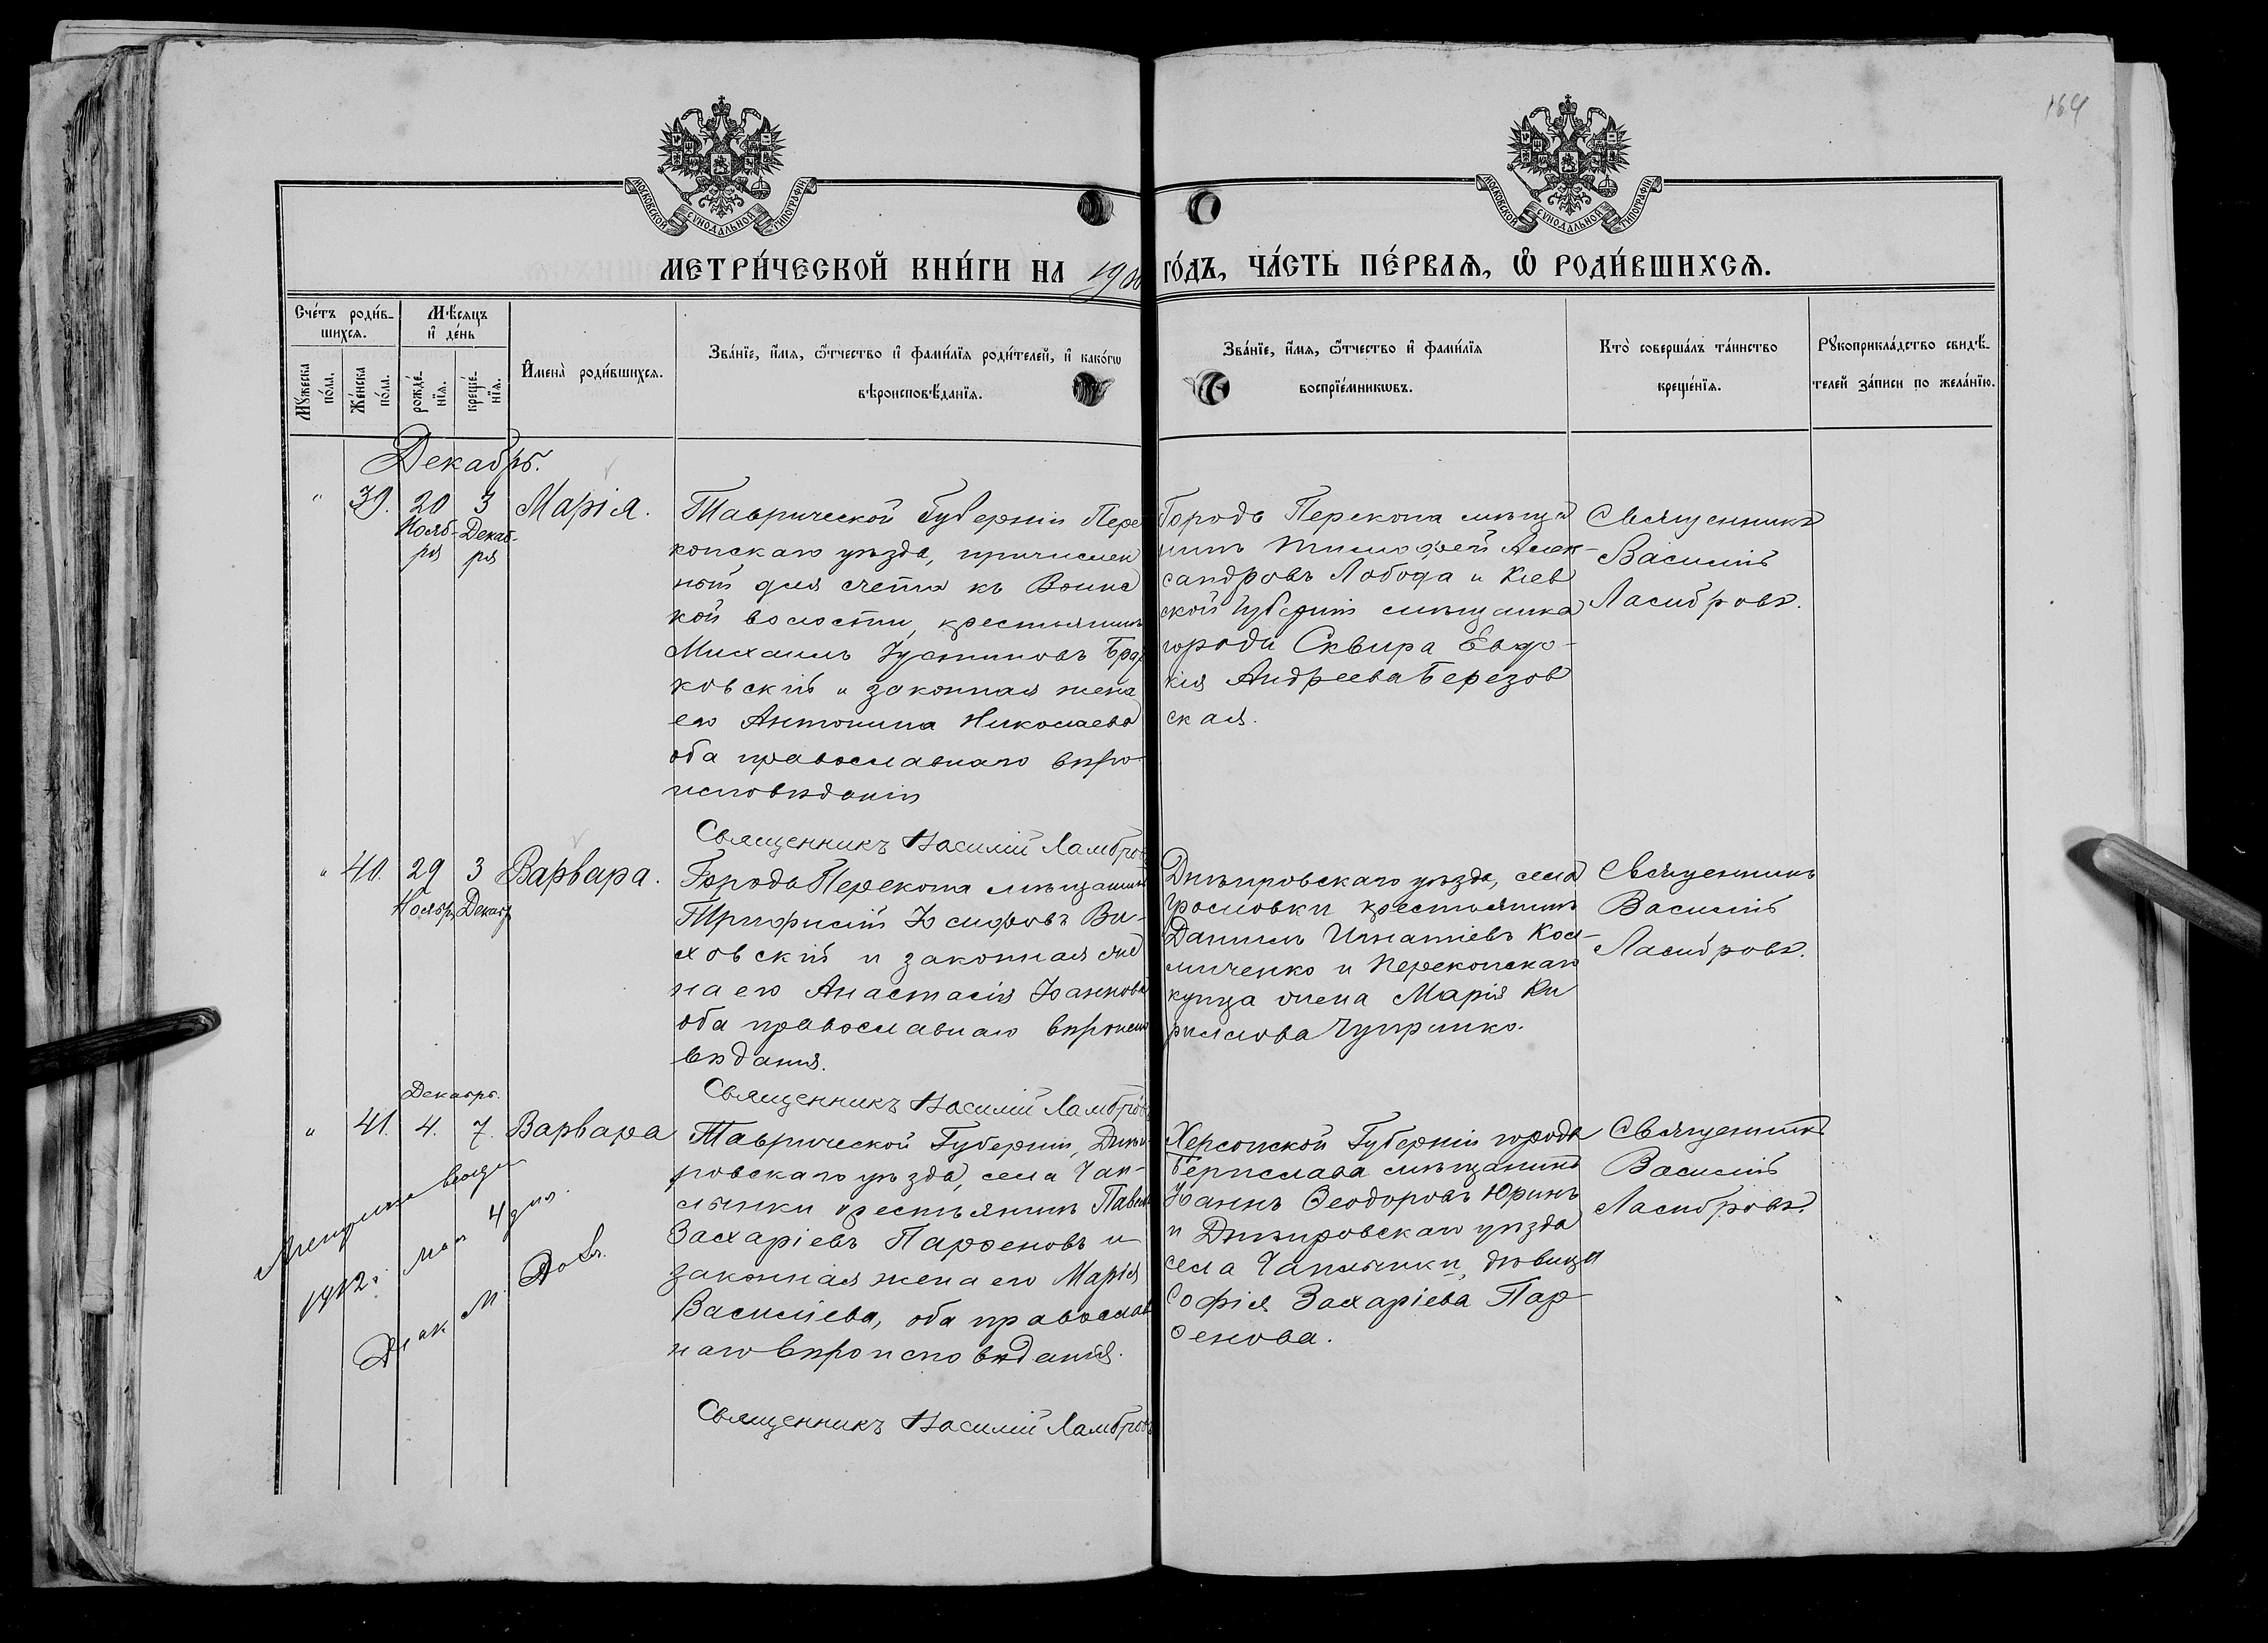 164
МОСКОВСКОЙ СУНОДАЛЬНОЙ ТИПОГРАФІИ
МОСКОВСКОЙ СУНОДАЛЬНОЙ ТИПОГРАФІИ
МЕТРИ́ЧЕСКОЙ КНИ́ГИ НА 1900 ГО́ДЪ, ЧА́СТЬ ПЕ́РВАѦ, Ѡ҆ РОДИ́ВШИХСѦ.
Сче́тъ роди́в-
шихсѧ.
Мꙋ́жеска
по́ла.
Же́нска
по́ла.
Мѣ́сѧцъ
и҆ де́нь
рожде́-
нїѧ.
креще́-
нїѧ.
И҆мена̀ роди́вшихсѧ.
Зва́нїе, и҆́мѧ, ѻ҆́тчество и҆ фами́лїѧ роди́телей, и҆ како́гѡ
вѣроисповѣ́данїѧ.
Зва́нїе, и҆́мѧ, ѻ҆́тчество и҆ фами́лїѧ
воспрїе́мникѡвъ.
Кто̀ соверша́лъ та́инство
креще́нїѧ.
Рꙋкоприкла́дство свидѣ́-
телей за́писи по жела́нїю.
Декабрь.
" 39. 20 3 Марія.
Нояб- Декаб-
ря ря
Таврической Губерніи Пере
копскаго уѣзда, причислен
ный для счета къ Воинс
кой волости, крестьянинъ
Михаилъ Іустиновъ
ковскій и законная жена
его Антонина Николаева
оба православнаго вѣро-
исповѣданія
Священникъ Василій Ламбровъ
Города Перекопа мѣща
нинъ Тимофей Алек-
сандровъ Лобода и Кіев
ской Губерніи мѣщанка
города Сквира Евдо-
кія Андреева Березов
ская.
Священникъ
Василій
Ламбровъ.
" 40. 29 3 Варвара.
Ноябр. Декабр
Города Перекопа мѣщанинъ
Трифилій Іосифовъ Ви-
ховскій и законная же
на его Анастасія Іоаннова
оба православнаго вѣроиспо
вѣданія.
Священникъ Василій Ламбровъ
Днѣпровскаго уѣзда, села
крестьянинъ
Даніилъ Игнатіевъ Кол-
миченко и Перекопскаго
купца жена Марія Ки
риллова Чупринко.
Священникъ
Василій
Ламбровъ.
Декабрь.
" 41. 4. 7. Варвара
Таврической Губерніи, Днѣп
ровскаго уѣзда, села Чап-
лынки крестьянинъ Павелъ
Захаріевъ Парѳеновъ и
законная жена его Марія
Василіева, оба православ
наго вѣроисповѣданія.
Священникъ Василій Ламбровъ
Херсонской Губерніи города
Берислава мѣщанинъ
Іоаннъ Ѳеодоровъ Юринъ
и Днѣпровскаго уѣзда
села Чаплынки, дѣвица
Софія Захаріева Пар-
ѳенова.
Священникъ
Василій
Ламбровъ.
1912 г. мая 4 дня.